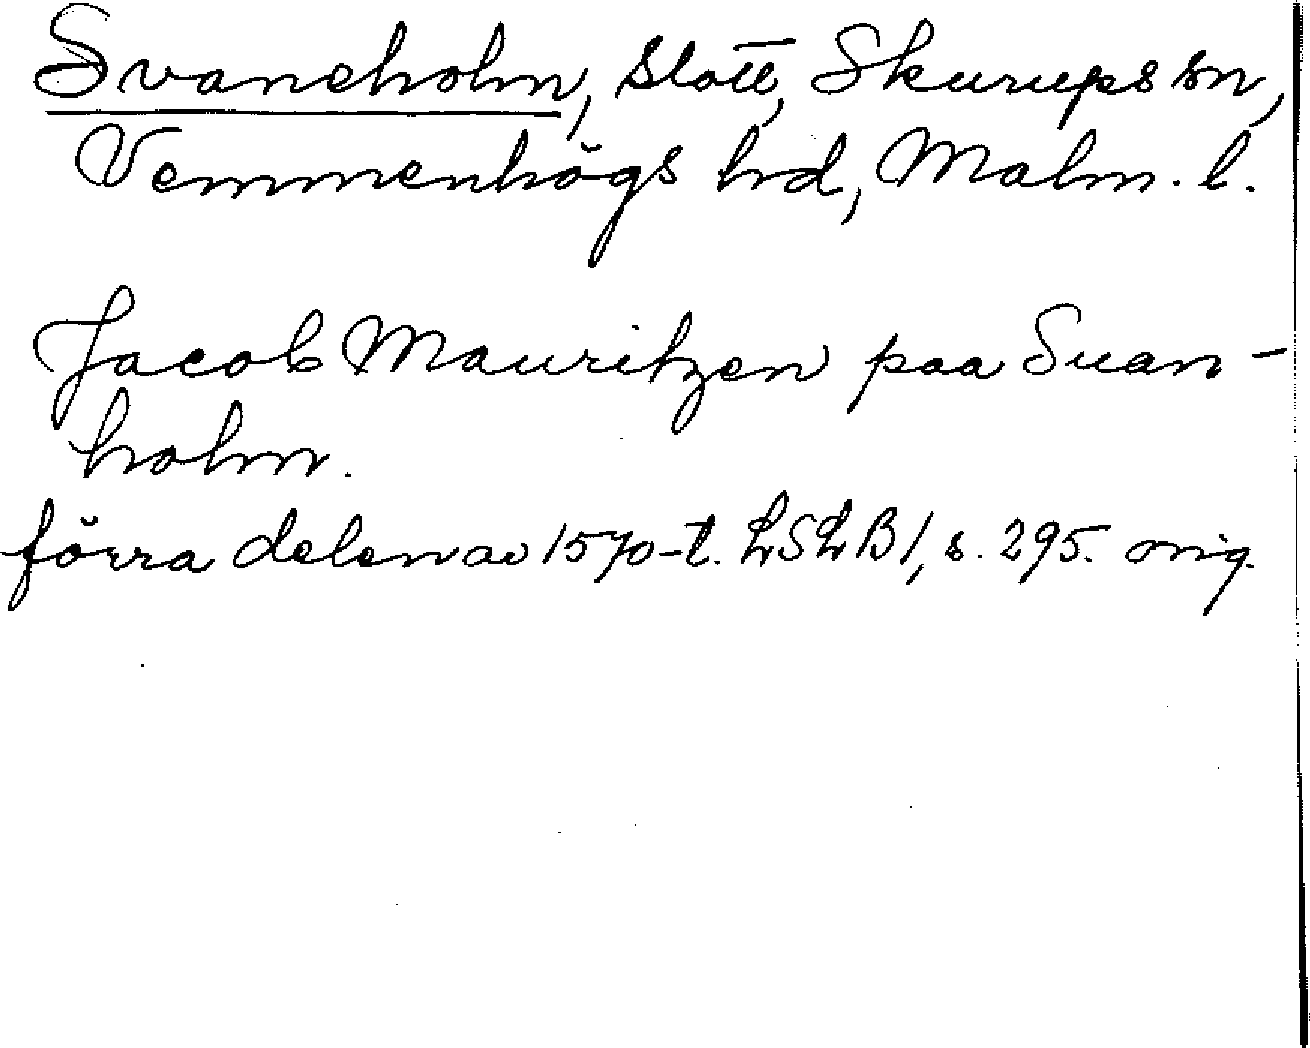 Svaneholm, slott, Skurups sn,
Vemmenhögs hd, Malm. l.
Jacob Mauritzen paa Suan-
holm.
förra delen av 1570-t. LSLB 1, s. 295. orig.